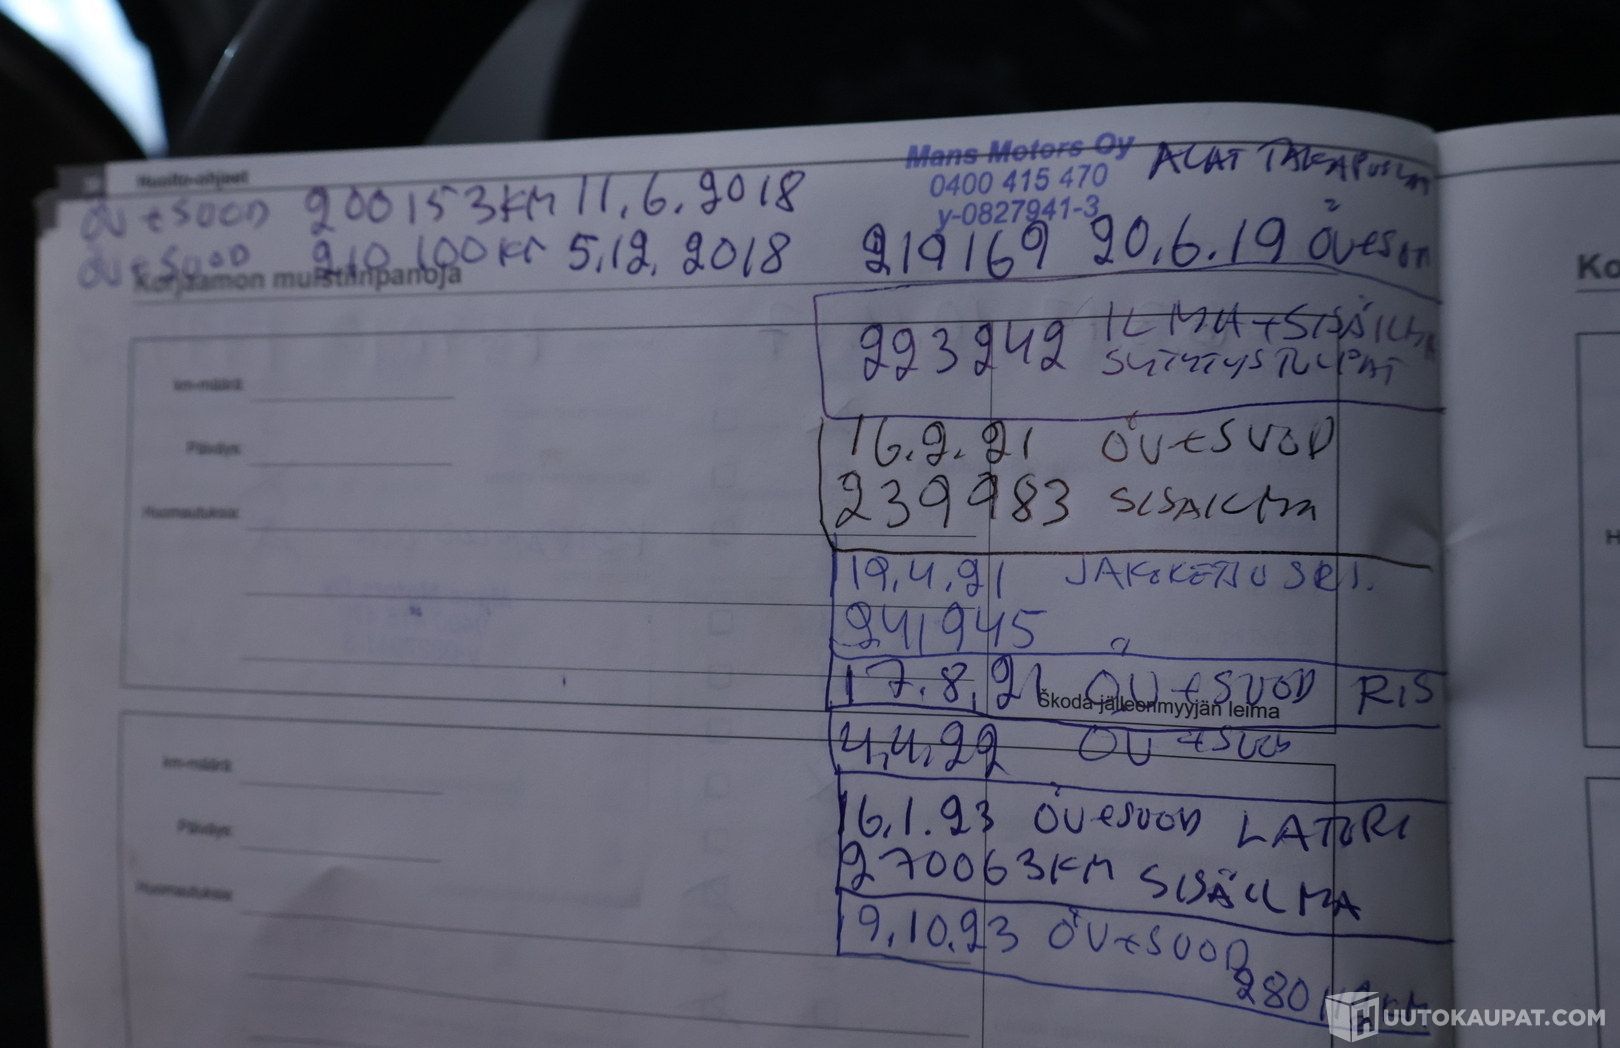 Huolto-ohjeet
ÖV+SUOD 200153KM 11.6.2018
ÖV+SUOD 210 100KM 5.12.2018
Korjaamon muistiinpanoja
Mans Motors Oy
0400 415 470
y-0827941-3
ALAT
219169 20.6.19
223242 ILMA+SISÄILMA
SYTYTYSTULPAT
16.2.21 ÖV+SUOD
239983 SISÄILMA
19.4.21
241945
17.8.21 ÖV+SUOD
Škoda-jälleenmyyjän leima
4.4.22 ÖV+SUOD
16.1.23 ÖV+SUOD LATURI
270063KM SISÄILMA
9.10.23 ÖV+SUOD
280
km-määrä:
Päiväys:
Huomautuksia:
km-määrä:
Päiväys:
Huomautuksia:
Ko
H
UUTOKAUPAT.COM